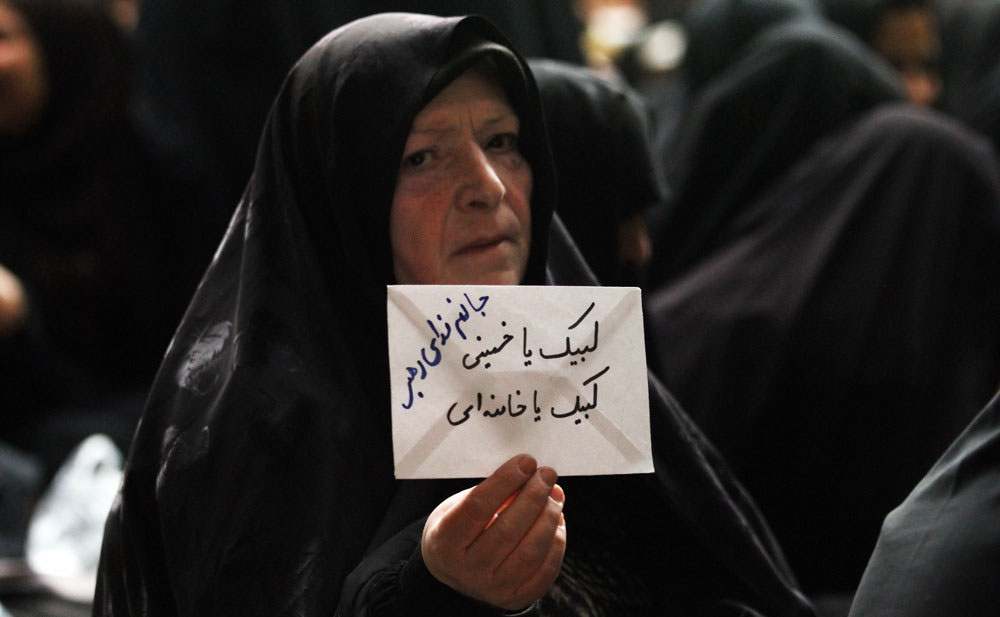 لبیک یا خمینی
لبیک یا خامنه‌ای
جانم فدای رهبر